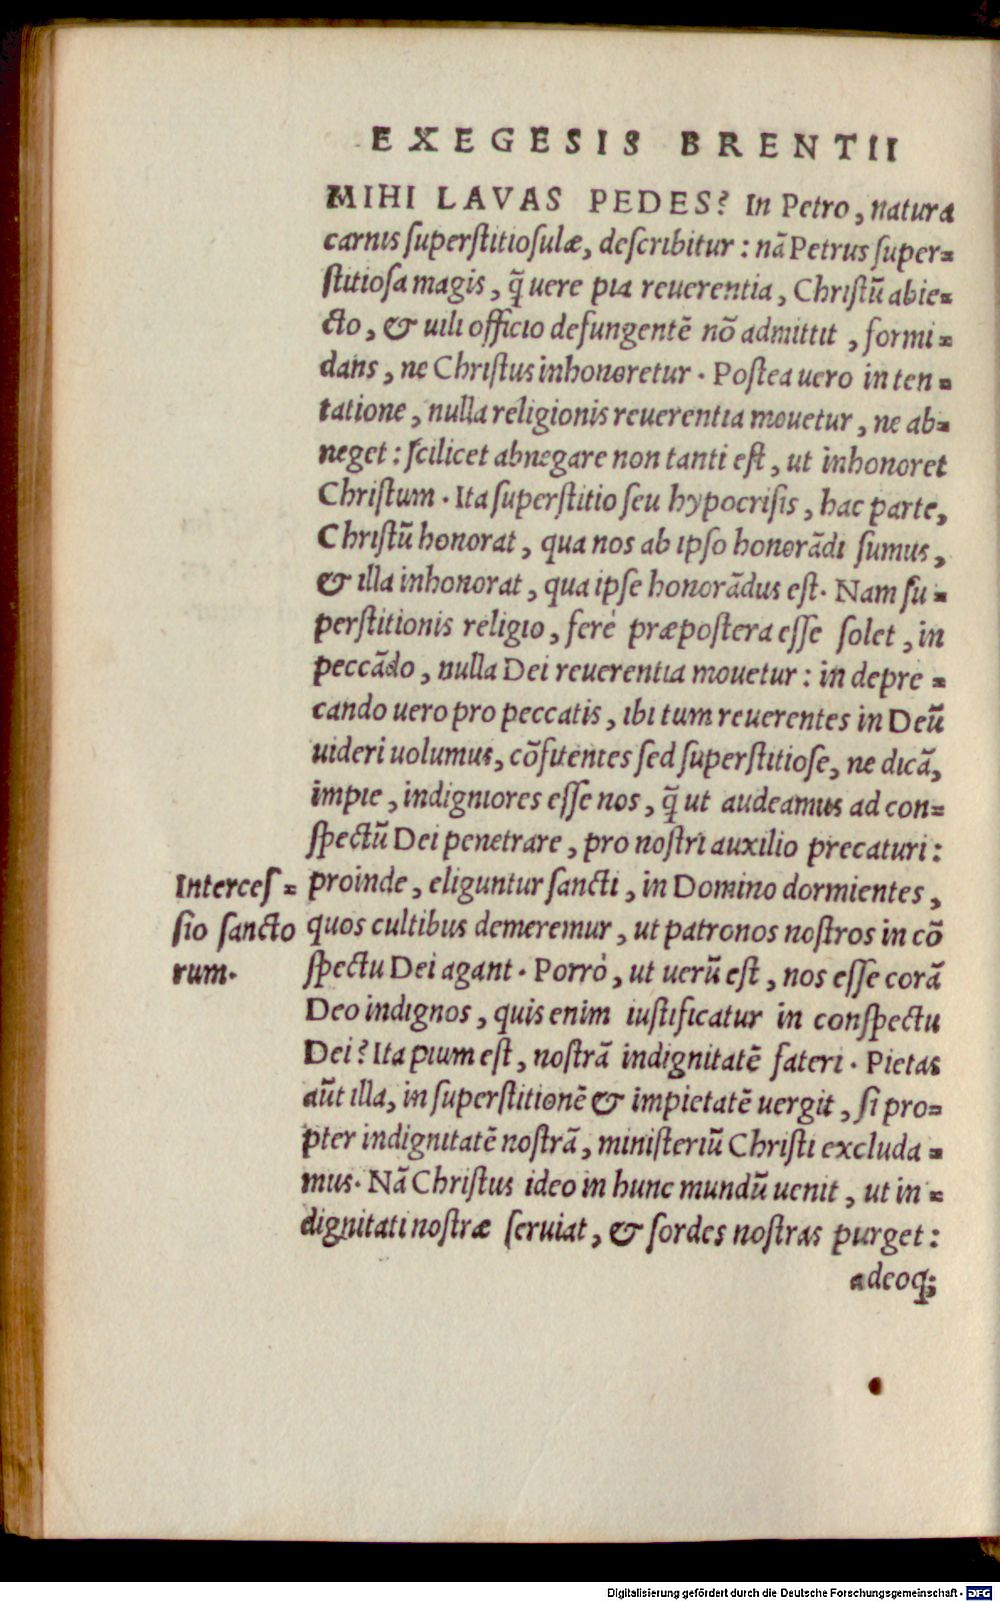 EXEGESIS BRENTII
MIHI LAVAS PEDES? In Petro, natura
carnis ſuperſtitioſulæ, deſcribitur: nã Petrus ſuper=
ſtitioſa magis, q̃ uere pia reuerentia, Chriſtũ abie=
cto, & uili officio defungentẽ nõ admittit, formi=
dans, ne Chriſtus inhonoretur. Poſtea uero in ten=
tatione, nulla religionis reuerentia mouetur, ne ab=
neget: ſcilicet abnegare non tanti eſt, ut inhonoret
Chriſtum. Ita ſuperſtitio ſeu hypocriſis, hac parte,
Chriſtũ honorat, qua nos ab ipſo honorãdi ſumus,
& illa inhonorat, qua ipſe honorãdus eſt. Nam ſu=
perſtitionis religio, ferè præpoſtera eſſe ſolet, in
peccãdo, nulla Dei reuerentia mouetur: in depre=
cando uero pro peccatis, ibi tum reuerentes in Deũ
uideri uolumus, cõfitentes ſed ſuperſtitioſe, ne dicã,
impie, indigniores eſſe nos, q̃ ut audeamus ad con=
ſpectũ Dei penetrare, pro noſtri auxilio precaturi:
proinde, eliguntur ſancti, in Domino dormientes,
quos cultibus demeremur, ut patronos noſtros in cõ
ſpectu Dei agant. Porrò, ut uerũ eſt, nos eſſe corã
Deo indignos, quis enim iuſtificatur in conſpectu
Dei? Ita pium eſt, noſtrã indignitatẽ fateri. Pietas
aũt illa, in ſuperſtitionẽ & impietatẽ uergit, ſi pro=
pter indignitatẽ noſtrã, miniſteriũ Chriſti excluda=
mus. Nã Chriſtus ideo in hunc mundũ uenit, ut in=
dignitati noſtræ ſeruiat, & ſordes noſtras purget:
adeoq;
Interceſ=
ſio ſancto
rum.
Digitalisierung gefördert durch die Deutsche Forschungsgemeinschaft - DFG